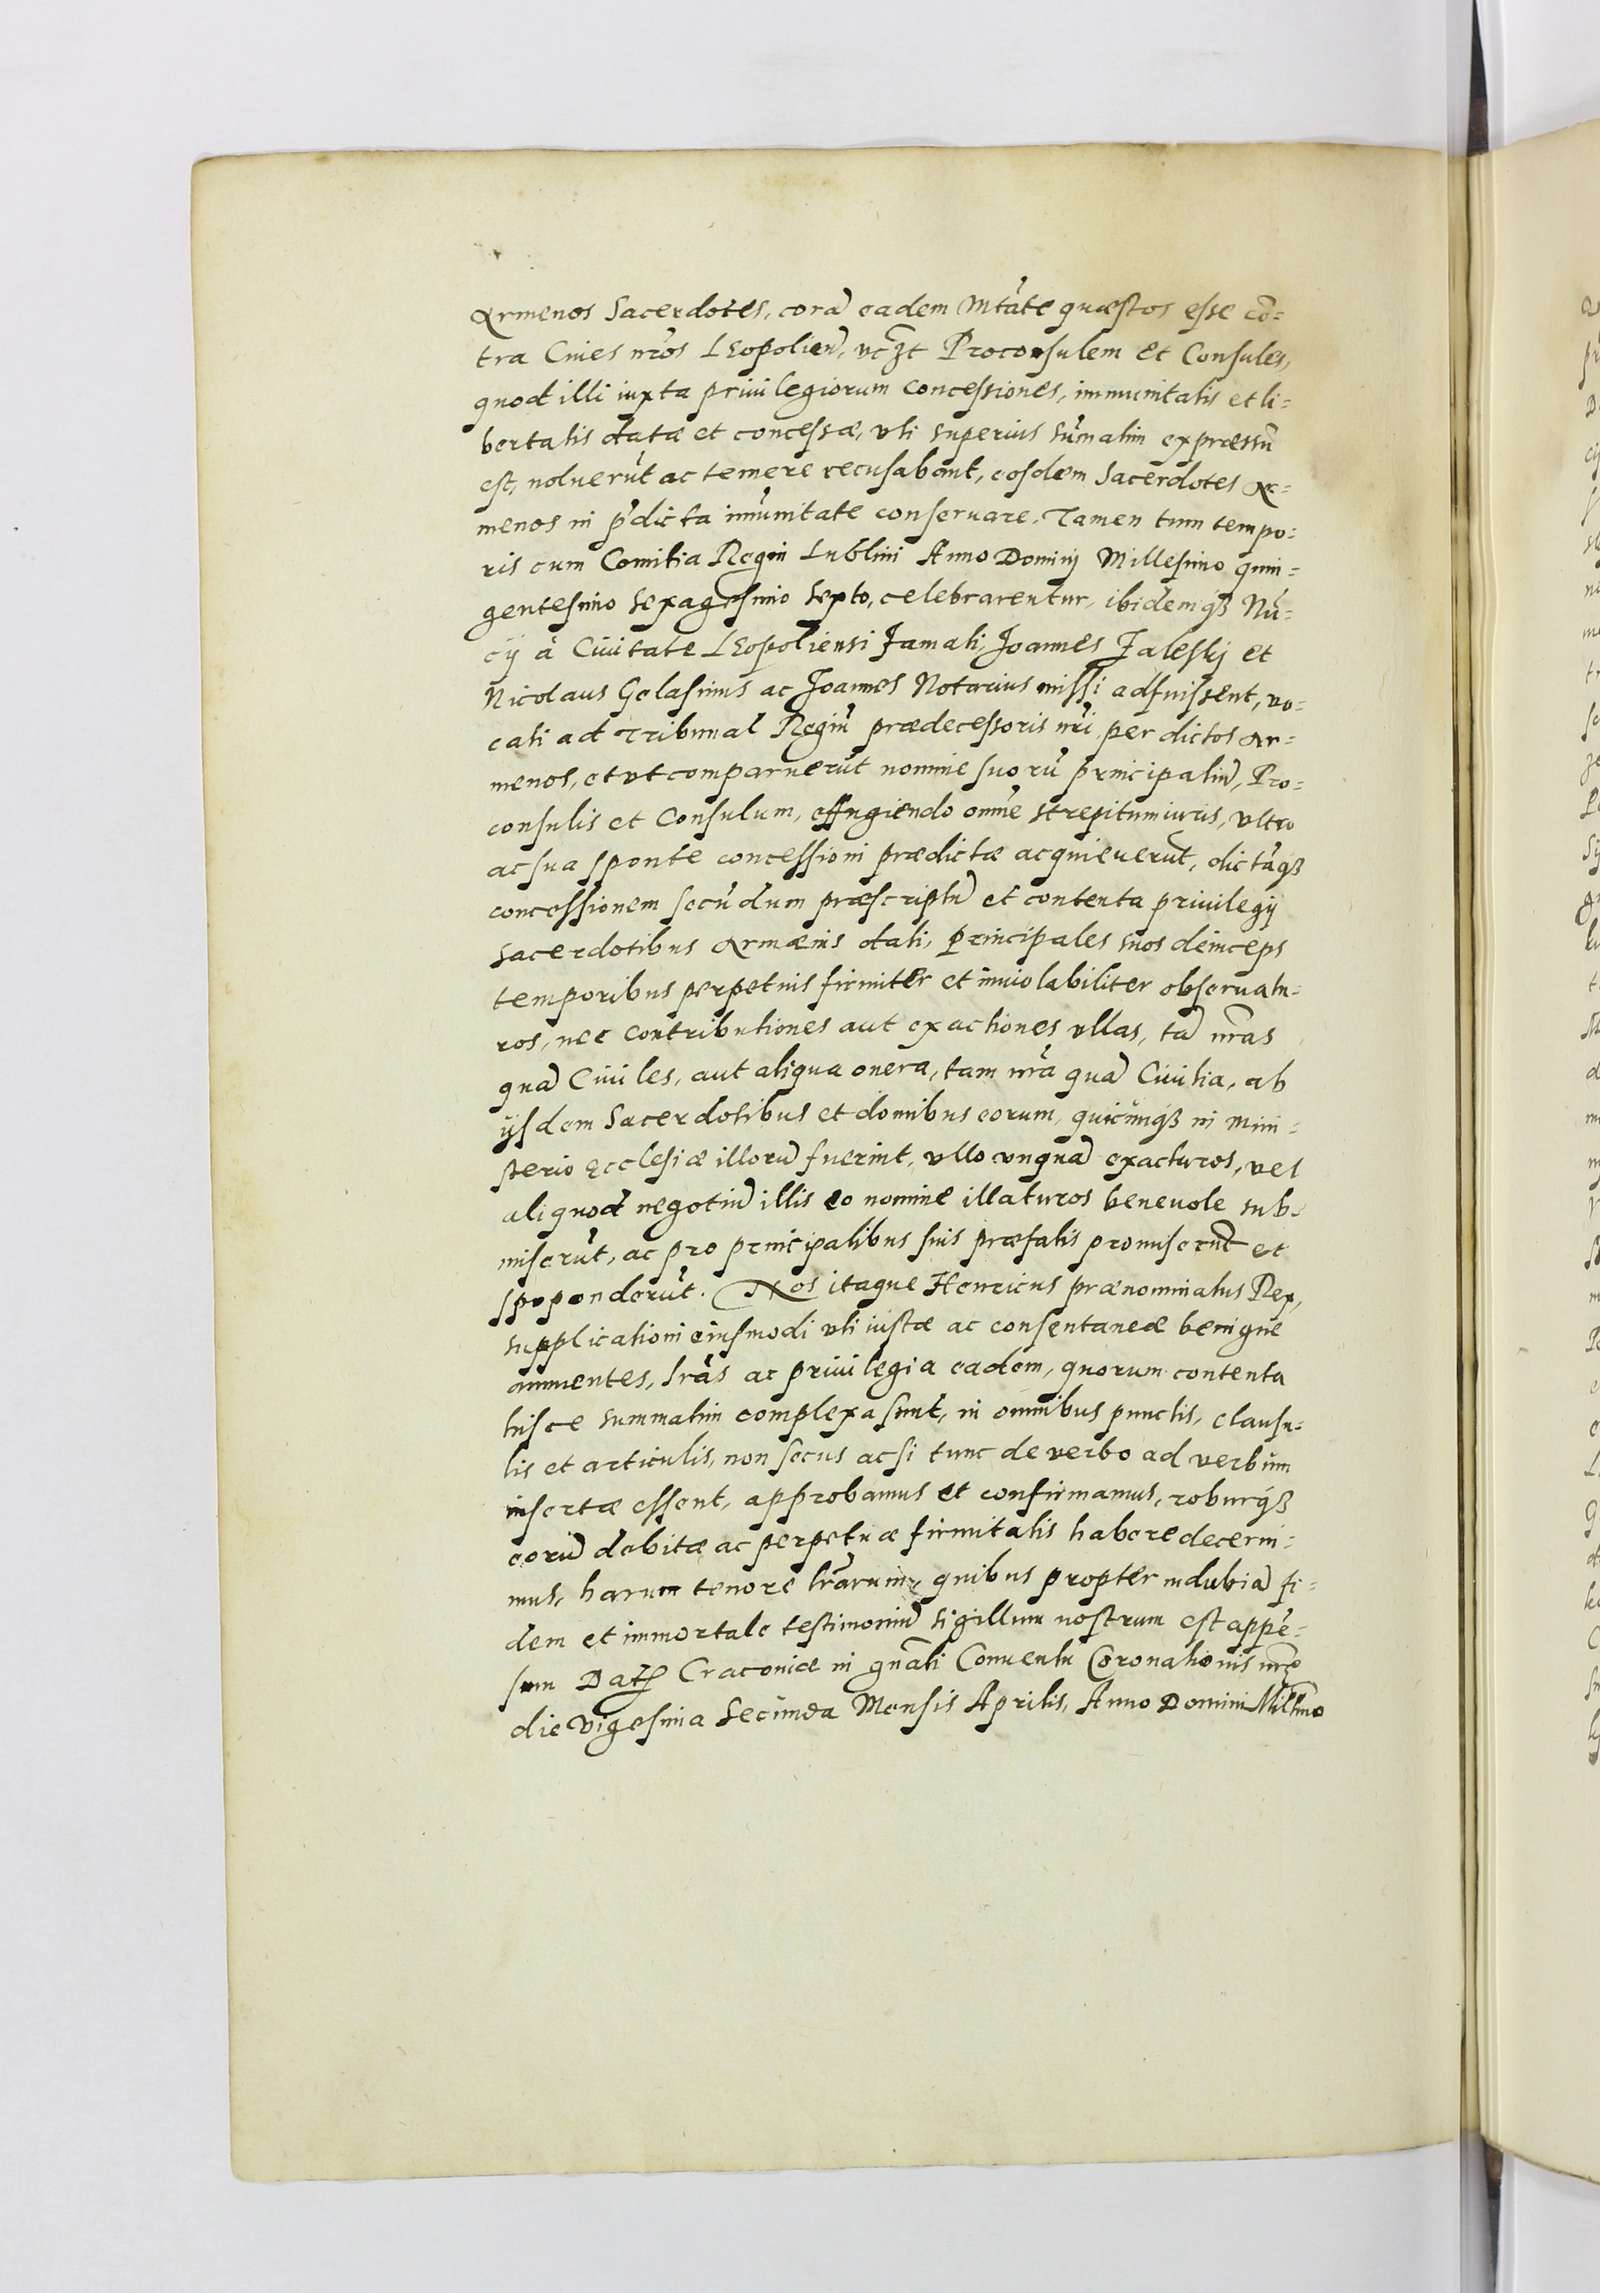 Armenos Sacerdotes, corã eadem Mtãte quæstos esse cõ=
tra Ciues nr̃os Leopolien̄, vcꝫt Proconsulem et Consules,
quod illi iuxta priuilegiorum concessiones, immunitatis et li=
bertatis datæ et concessæ, vti superius sũmatim expressũ
est, noluerũt ac temere recusabant, eosdem Sacerdotes Ar=
menos in p̃dicta imũnitate conseruare. Tamen tum tempo=
ris cum Comitia Regni Lublini Anno Dominj Millesimo quin=
gentesimo sexagesimo sexto, celebrarentur, ibidemqꝫ Nũ=
cij à Ciuitate Leopoliensi Famati, Joannes Zaleskj et
Nicolaus Gelasinus ac Joannes Notarius missi adfuissent, vo=
cati ad Tribunal Regiũ prædecessoris nr̃i per dictos Ar=
menos, et vt comparuerũt nomine suorũ principaliũ, Pro=
consulis et Consulum, effugiendo omñe strepitum iuris, vltro
ac sua sponte concessioni prædictæ acquieuerũt, dictãqꝫ
concessionem secũdum præscriptũ et contenta priuilegij
Sacerdotibus Armænis dati, principales suos deinceps
temporibus perpetuis firmiter et inuiolabiliter obseruatu=
ros, nec contributiones aut exactiones vllas, tã nr̃as
quã Ciuiles, aut aliqua onera, tam nr̃a quã Ciuilia, ab
ijsdem Sacerdotibus et domibus eorum, quicũnqꝫ in mini=
sterio Ecclesiæ illorũ fuerint, vllo vnquã exacturos, vel
aliquod negotiũ illis eo nomine illaturos beneuole sub=
miserũt, ac pro principalibus suis præfatis promiserũt et
spoponderũt. Nos itaque Henricus prænominatus Rex,
supplicationi eiusmodi vti iustæ ac consentaneæ benigne
annuentes, lr̃as ac priuilegia eadem, quorum contenta
hisce summatim complexa sunt, in omnibus punctis, clausu=
lis et articulis, non secus ac si tunc de verbo ad verbum
insertæ essent, approbamus et confirmamus, roburqꝫ
eorũ debitæ ac perpetuæ firmitatis habere decerni=
mus, harum tenore lr̃arum, quibus propter indubiã fi=
dem et immortale testimoniũ sigillum nostrum est appẽ=
sum Datꝭ Cracouiæ in gñali Conuentu Coronationis nr̃æ
die Vigesima Secunda Mensis Aprilis, Anno Domini Millm̃o